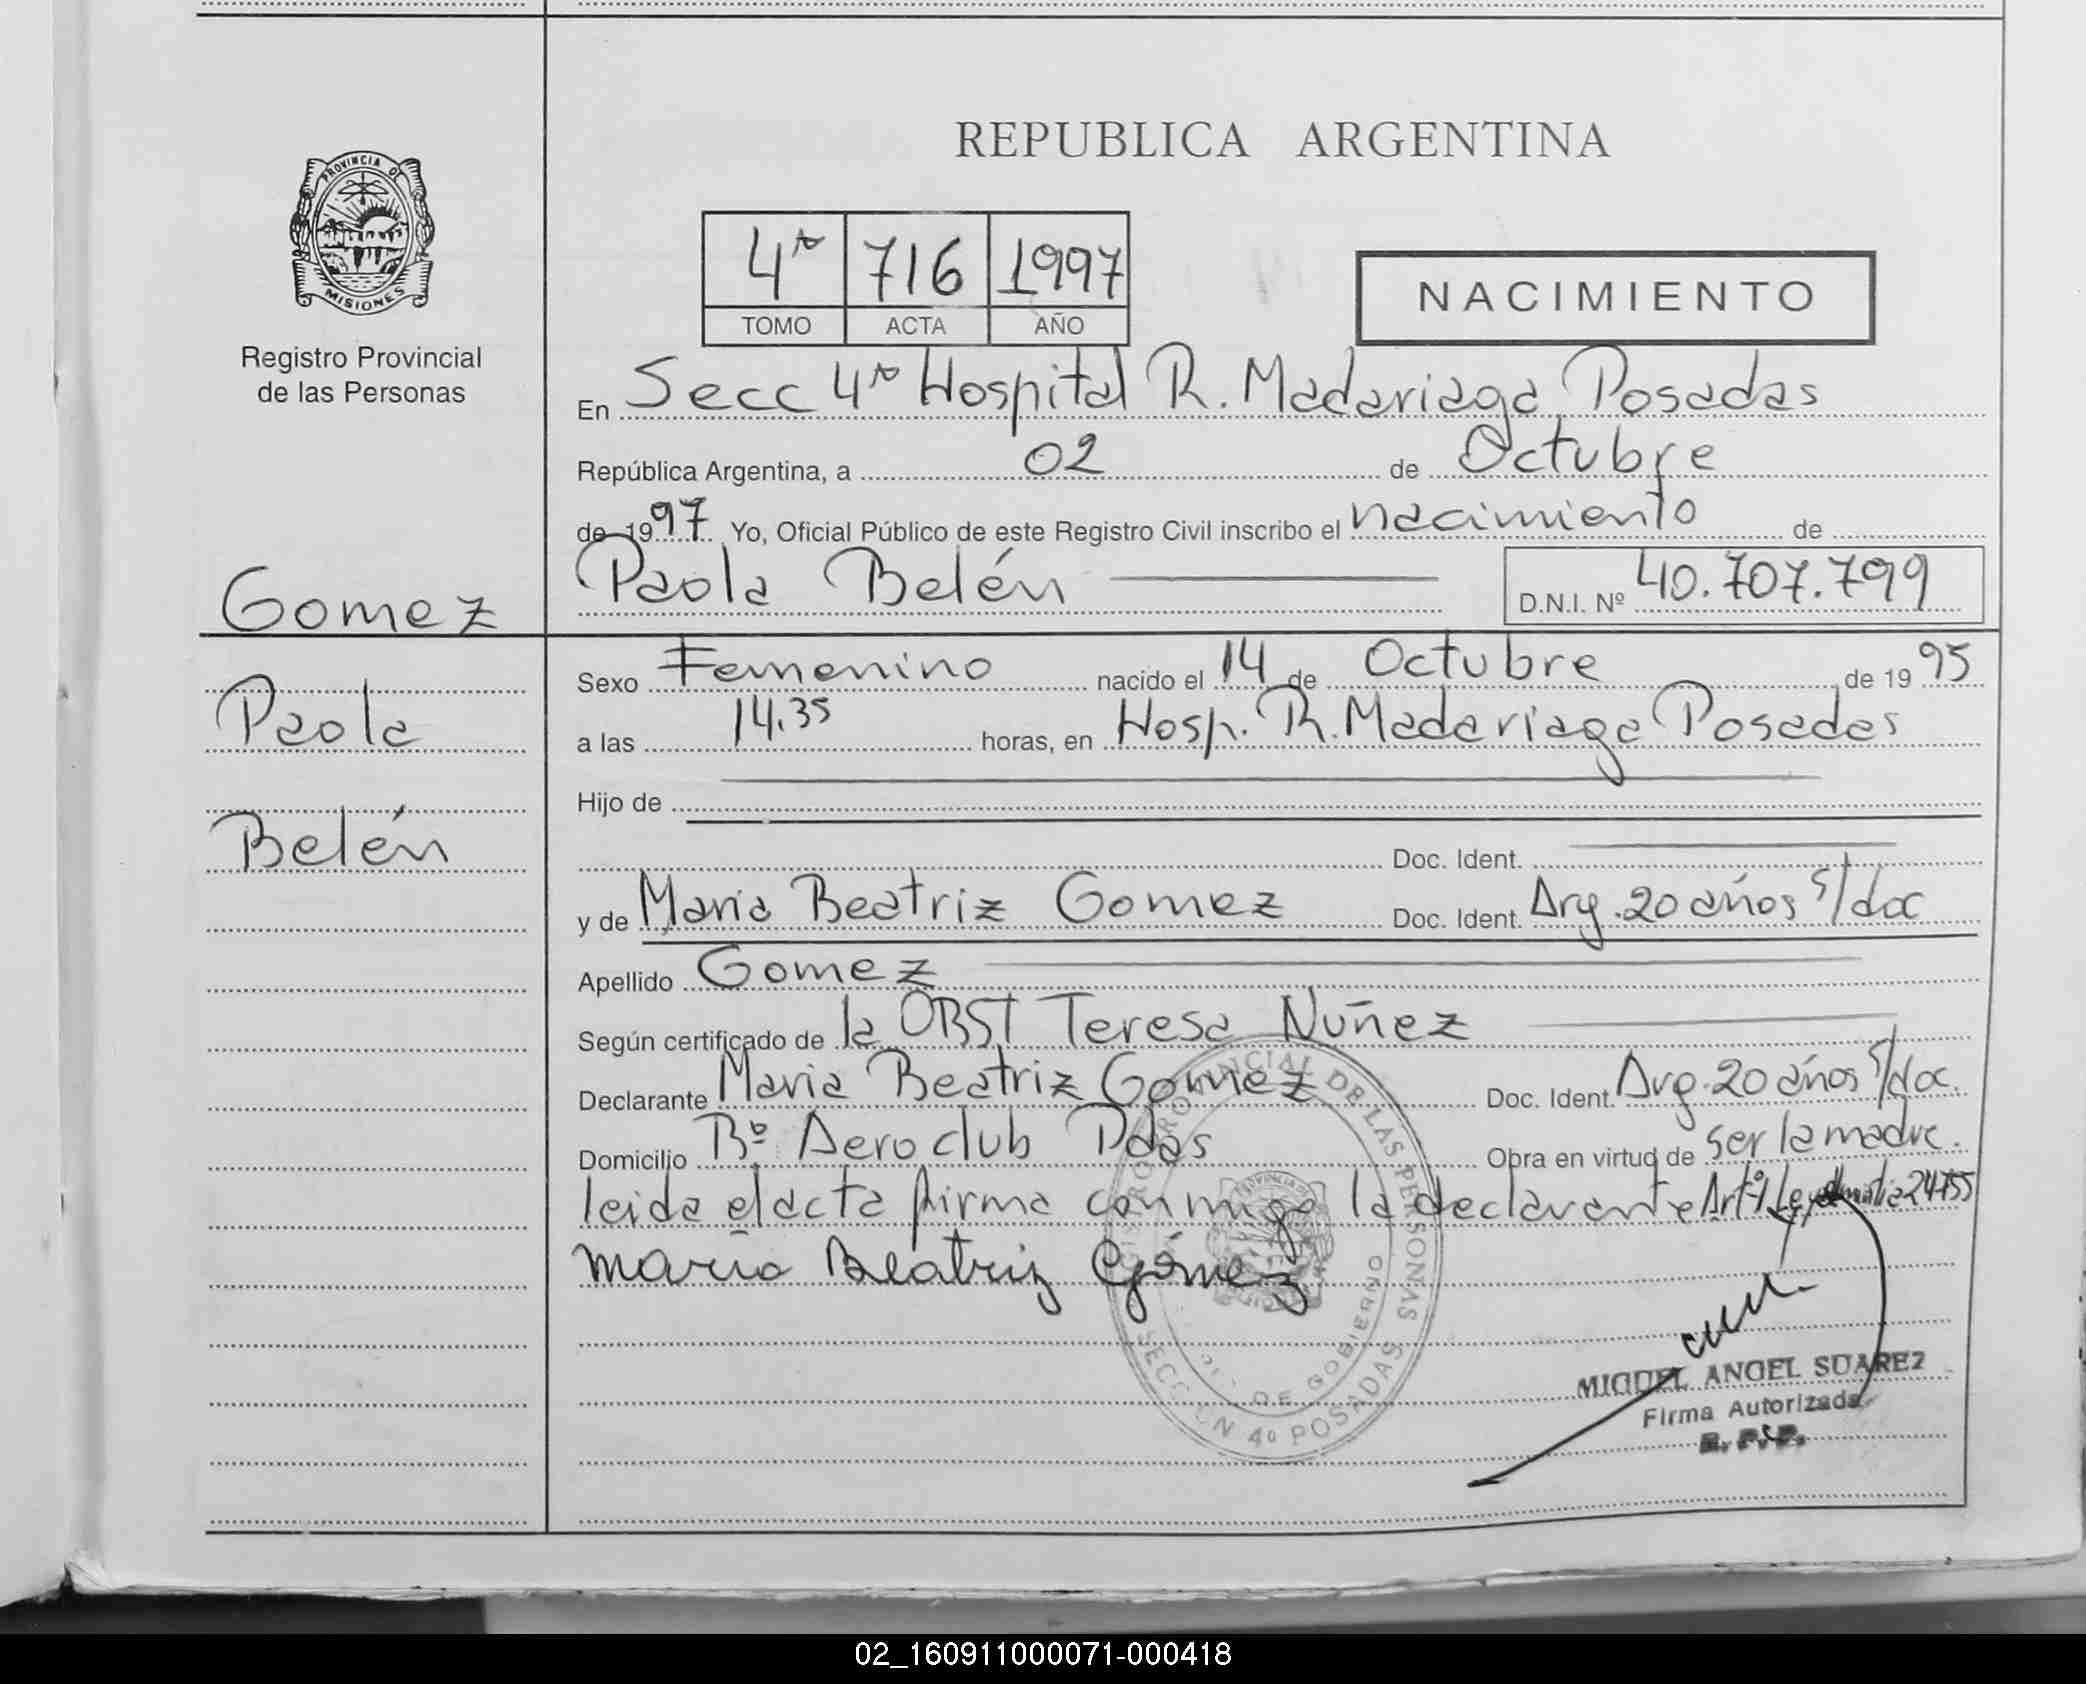 REPUBLICA ARGENTINA
PROVINCIA DE
MISIONES
Registro Provincial
de las Personas
4ta 716 1997
TOMO ACTA AÑO
NACIMIENTO
En Secc 4ta Hospital R. Madariaga Posadas
República Argentina, a 02 de Octubre
de 1997 Yo, Oficial Público de este Registro Civil inscribo el nacimiento de
Paola Belén
D.N.I. Nº 40.707.799
Gomez
Paola
Belén
Sexo Femenino nacido el 14 de Octubre de 1995
a las 14.35 horas, en Hosp. R. Madariaga Posadas
Hijo de
Doc. Ident.
y de Maria Beatriz Gomez Doc. Ident. Arg. 20 años s/doc
Apellido Gomez
Según certificado de la OBST Teresa Nuñez
Declarante Maria Beatriz Gomez Doc. Ident. Arg. 20 años s/doc.
Domicilio Bº Aeroclub Pdas Obra en virtud de ser la madre.
leida el acta firma conmigo la declarante Artº 1 Ley 24755
Maria Beatriz Gómez
REGISTRO PROVINCIAL DE LAS PERSONAS
DE GOBIERNO
SECCION 4º POSADAS
MIGUEL ANGEL SUAREZ
Firma Autorizada
R. P. P.
02_160911000071-000418